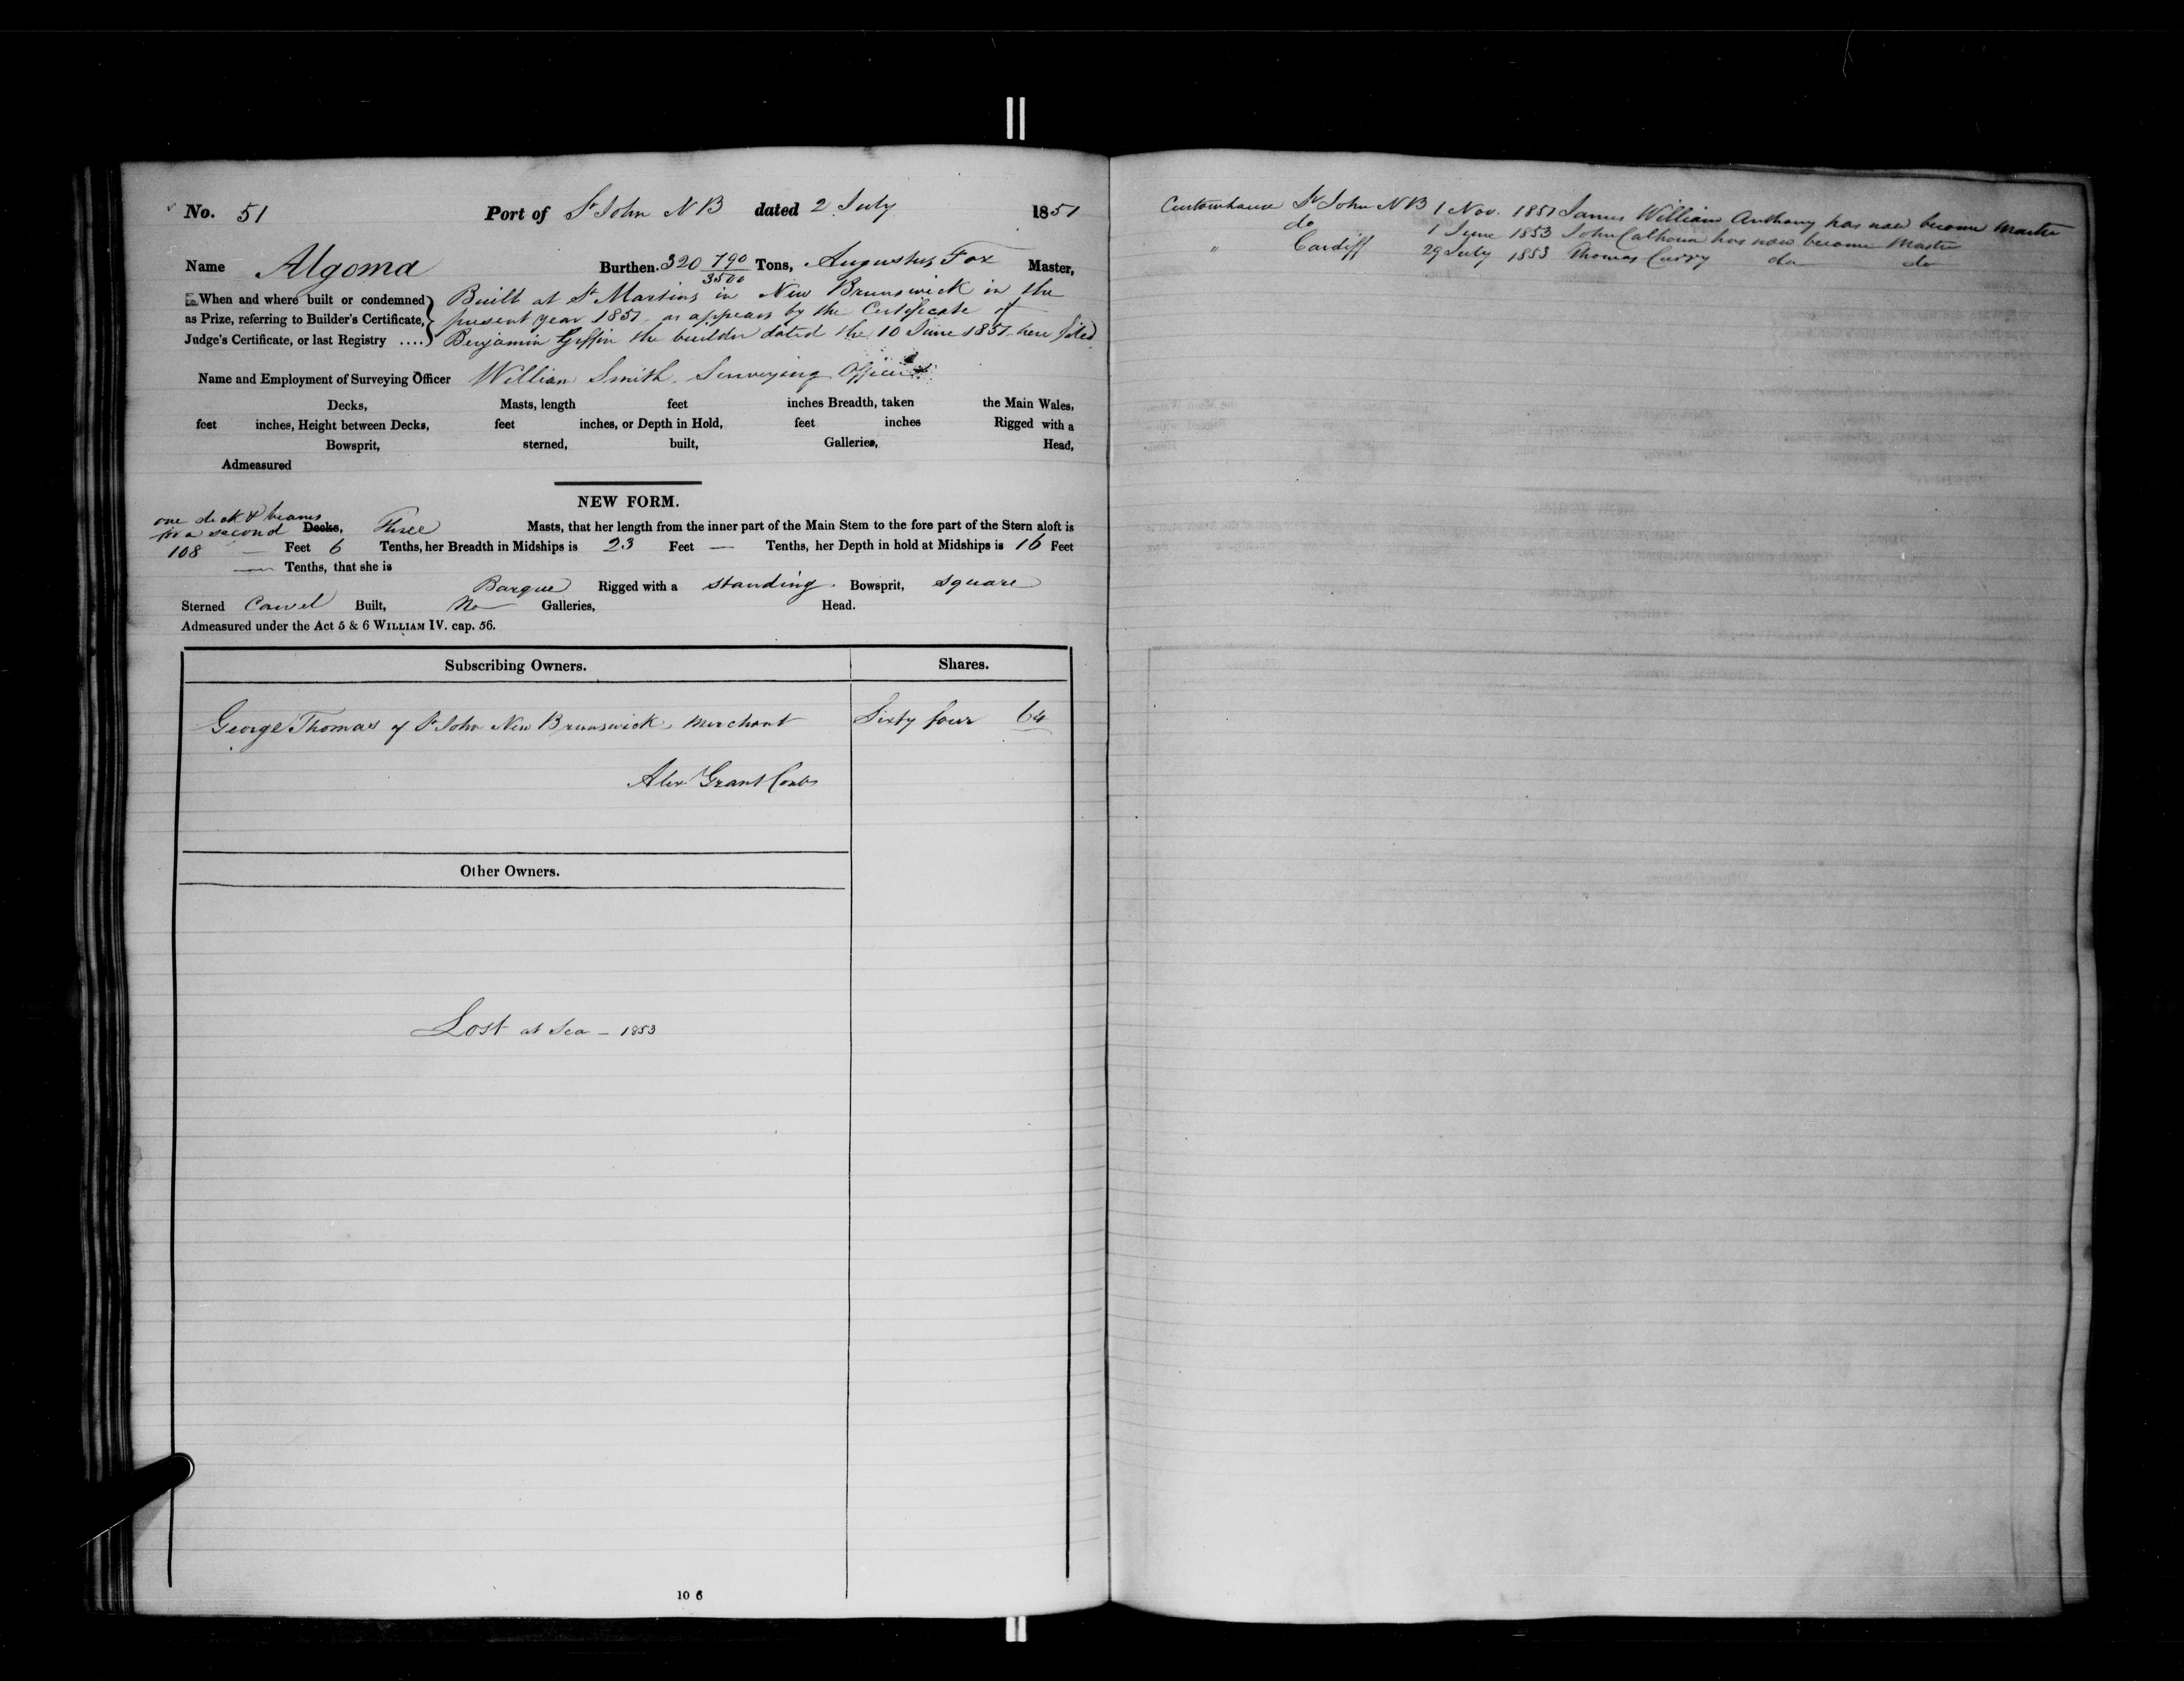 No. 51 Port of St John NB dated 2 July 1851
Name Algoma Burthen. 320 790/3500 Tons, Augustus Fox Master,
When and where built or condemned Built at St Martins in New Brunswick in the
as Prize, referring to Builder's Certificate, present year 1851 as appears by the Certificate of
Judge's Certificate, or last Registry .... Benjamin Giffin the builder dated the 10 June 1851 here filed
Name and Employment of Surveying Officer William Smith Surveying Officer
Decks, Masts, length feet inches Breadth, taken the Main Wales,
feet inches, Height between Decks, feet inches, or Depth in Hold, feet inches Rigged with a
Bowsprit, sterned, built, Galleries, Head,
Admeasured
NEW FORM.
one deck & beams
for a second Decks, Three Masts, that her length from the inner part of the Main Stem to the fore part of the Stern aloft is
108 — Feet 6 Tenths, her Breadth in Midships is 23 Feet — Tenths, her Depth in hold at Midships is 16 Feet
— Tenths, that she is
Barque Rigged with a standing Bowsprit, square
Sterned Carvel Built, No Galleries, Head.
Admeasured under the Act 5 & 6 WILLIAM IV. cap. 56.
Subscribing Owners. Shares.
George Thomas of St John New Brunswick, Merchant Sixty four 64
Alex Grant
Other Owners.
Lost at Sea — 1853
10 6
Customhouse St John NB 1 Nov. 1851 James William Anthony has now become Master
do 1 June 1853 John Calhoun has now become Master
" Cardiff 29 July 1853 Thomas Curry do do